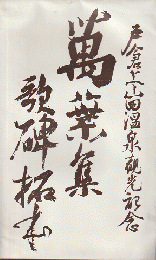 戸倉上山田温泉観光記念
萬葉集
歌碑拓本